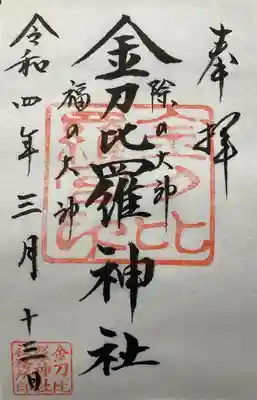 奉拝
除の大神
金刀比羅神社
福の大神
令和四年三月十三日
金刀比